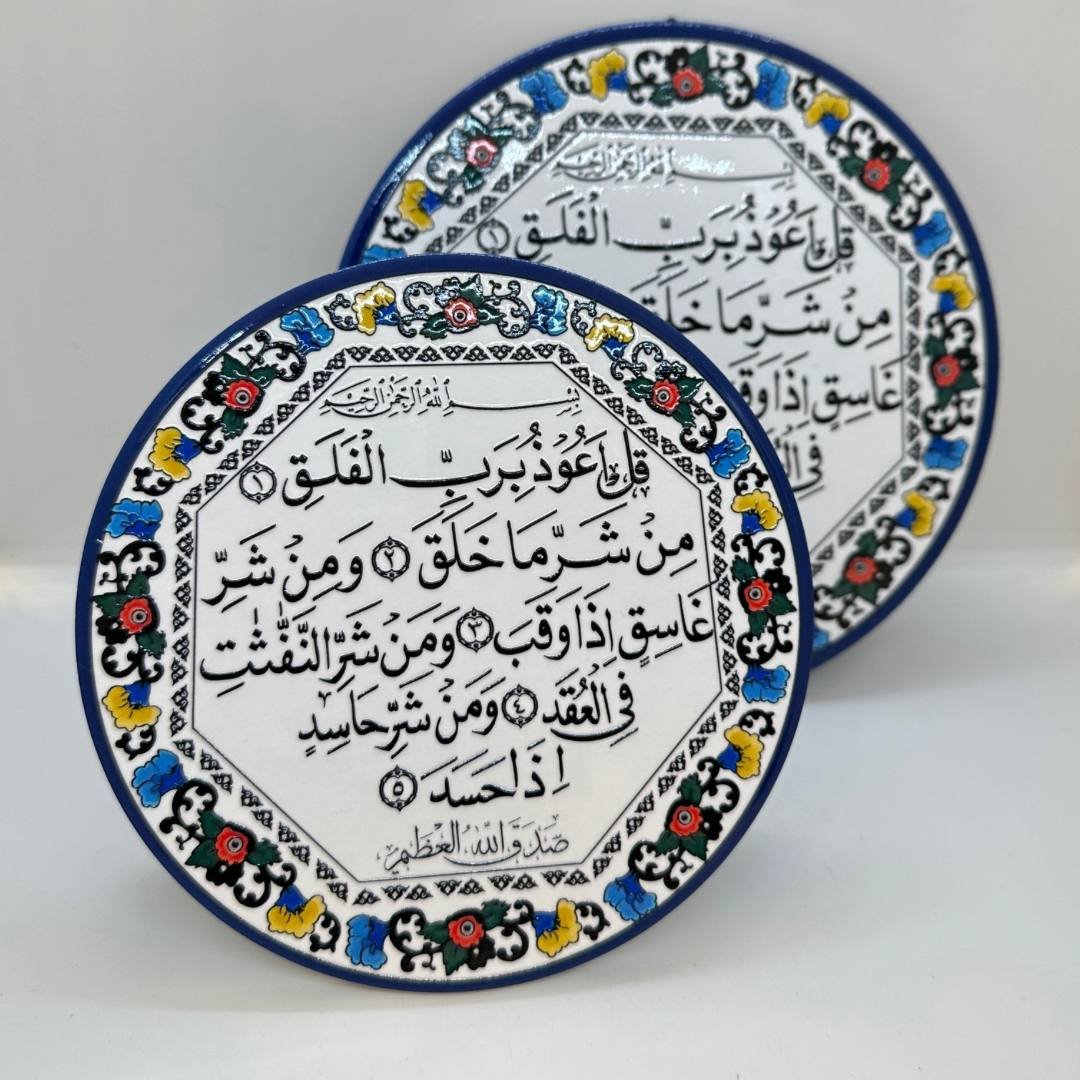 بسم الله الرحمن الرحيم
قُلْ أَعُوْذُ بِرَبِّ الْفَلَقِ ١
مِنْ شَرِّ مَا خَلَقَ ٢ وَمِنْ شَرِّ
غَاسِقٍ إِذَا وَقَبَ ٣ وَمَنْ شَرِّ النَّفّٰثٰتِ
فِى الْعُقَدِ ٤ وَمَنْ شَرِّ حَاسِدٍ
اِذَا حَسَدَ ٥
صَدَقَ اللهُ العَظِيم
بسم الله الرحمن الرحيم
قُلْ أَعُوْذُ بِرَبِّ الْفَلَقِ ١
مِنْ شَرِّ مَا خَلَقَ
غَاسِقٍ إِذَا
فِى